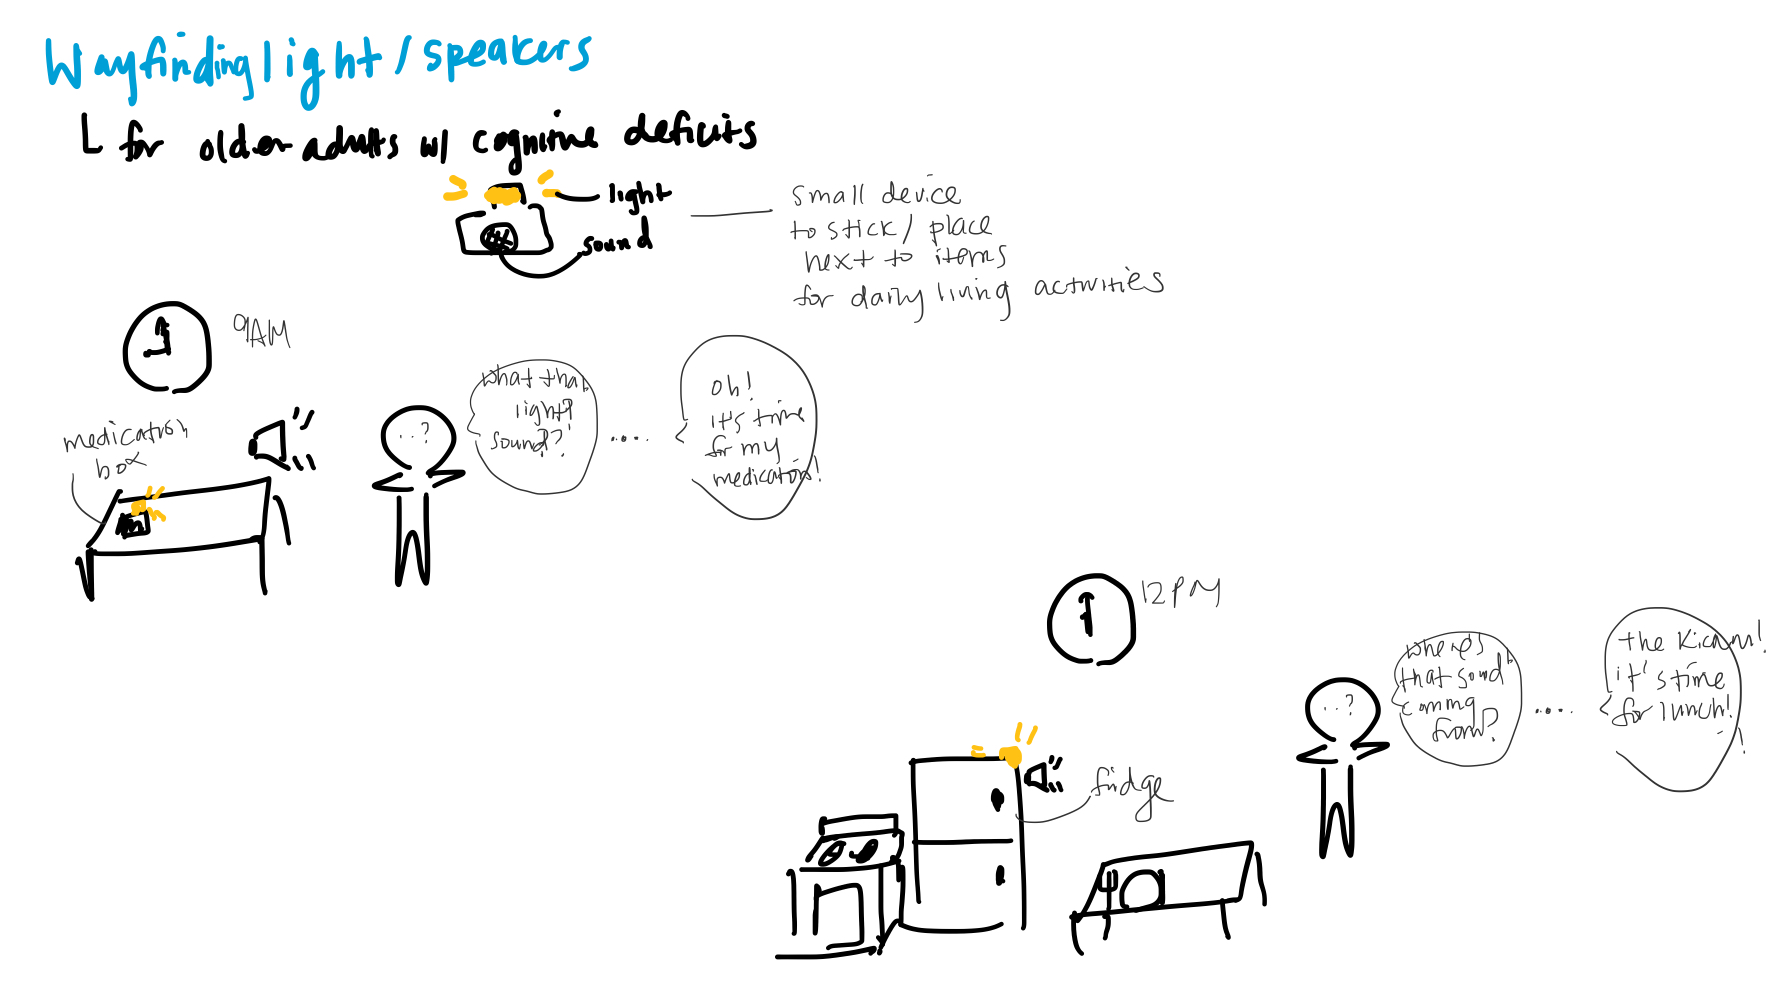 Wayfinding light / speakers
L for older adults w/ cognitive deficits
light
sound
small device
to stick / place
next to items
for daily living activities
9AM
medication
box
..?
what that
light?
sound?
.....
oh!
it's time
for my
medication!
12PM
..?
where's
that sound
coming
from?
....
the Kichen!
it's time
for lunch!
!
fridge